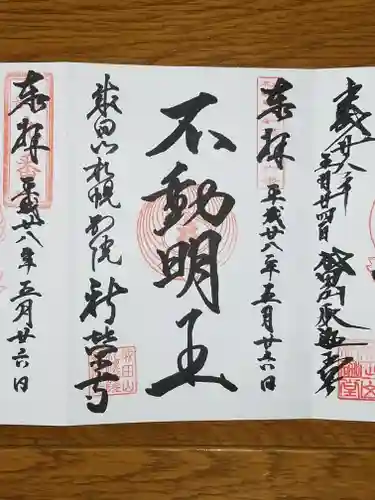 平成廿八年
五月廿四日
奉拝
平成廿八年五月廿六日
不動明王
成田山札幌別院新栄寺
奉拝
平成廿八年五月廿六日